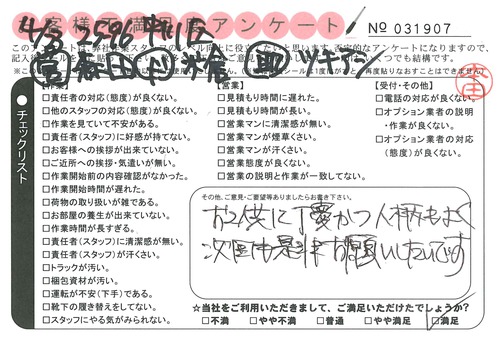 お客様不満足度アンケート
No 031907
4/3 2596 中川区
このアンケートは、弊社営業スタッフのレベル向上に役立てたいと思います。否定的なアンケートになりますので、
【作業】
□責任者の対応(態度)が良くない。
□他のスタッフの対応(態度)が良くない。
□作業を見ていて不安がある。
□責任者(スタッフ)に好感が持てない。
□お客様への挨拶が出来ていない。
□ご近所への挨拶・気遣いが無い。
□作業開始前の内容確認がなかった。
□作業開始時間が遅れた。
□荷物の取り扱いが雑である。
□お部屋の養生が出来ていない。
□作業時間が長すぎる。
□責任者(スタッフ)に清潔感が無い。
□責任者(スタッフ)が汗くさい。
□トラックが汚い。
□梱包資材が汚い。
□運転が不安(下手)である。
□靴下の履き替えをしてない。
□スタッフにやる気がみられない。
【営業】
□見積もり時間に遅れた。
□見積もり時間が長い。
□営業マンに清潔感が無い。
□営業マンが煙草くさい。
□営業マンが汗くさい。
□営業態度が良くない。
□営業の説明と作業が一致してない。
【受付・その他】
□電話の対応が良くない。
□オプション業者の説明
・作業が良くない。
□オプション業者の対応
(態度)が良くない。
チェックリスト
その他、ご意見・ご要望等ありましたらお書き下さい。
お2人共に丁寧かつ人柄もよく
次回も是非お願いしたいです
☆当社をご利用いただきまして、ご満足いただけたでしょうか?
□不満 □やや不満 □普通 □やや満足 □満足